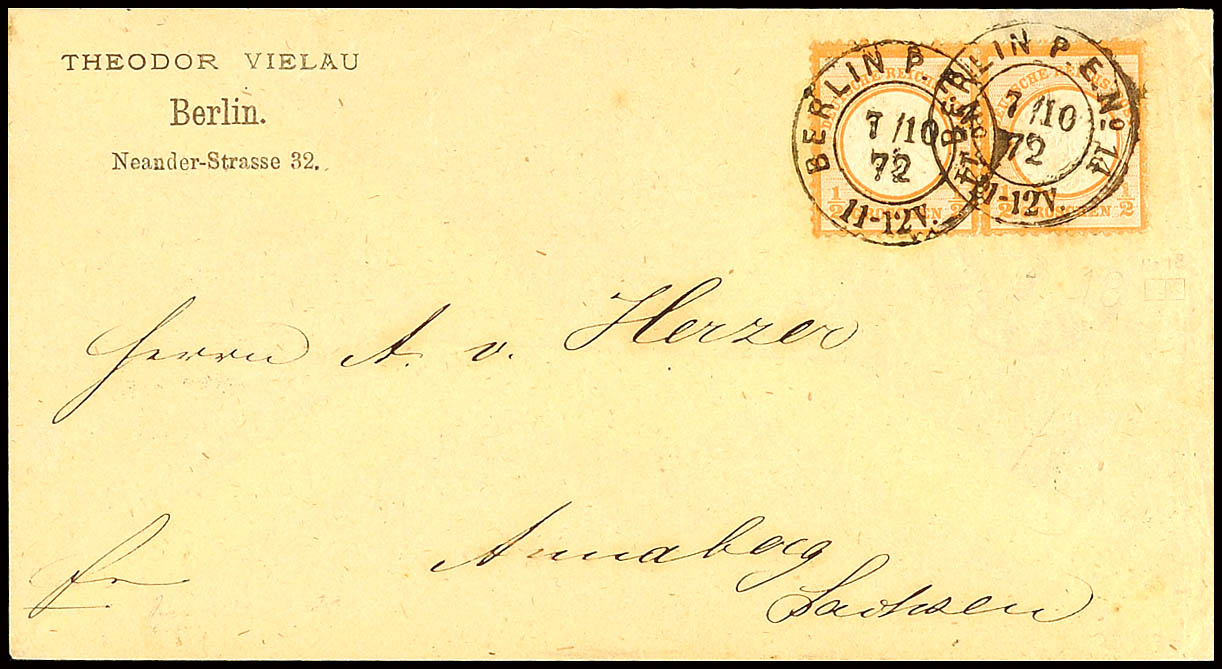 THEODOR VIELAU
Berlin.
Neander-Strasse 32.
BERLIN P.
7/10
72
11-12V.
BERLIN P.E.No. 14
7/10
72
11-12V.
1/2 GROSCHEN 1/2
1/2 GROSCHEN 1/2
Herrn A. v. Herzer
fr
Annaberg
Sachsen